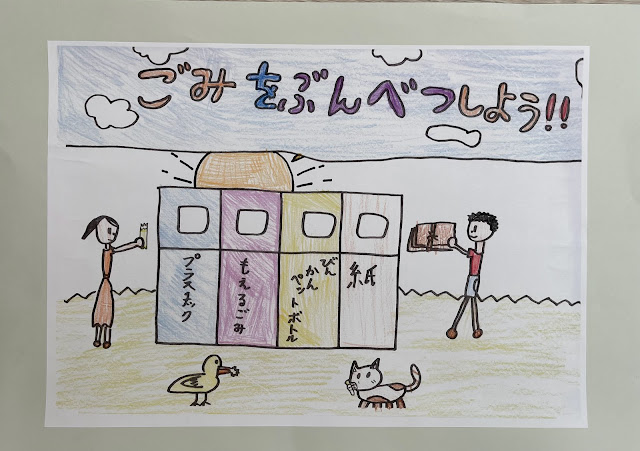 ごみをぶんべつしよう!!
プラスチック
もえるごみ
びん
かん
ペットボトル
紙